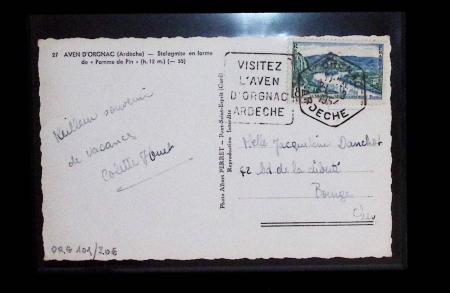 27 AVEN D'ORGNAC (Ardèche) — Stalagmite en forme
de « Pomme de Pin » (h. 12 m.) (— 55)
VISITEZ
L'AVEN
D'ORGNAC
ARDECHE
ARDECHE
Meilleur souvenir
de vacances
Colette
Photo Albert PERRET — Pont-Saint-Esprit (Gard)
Reproduction Interdite
Melle Jacqueline Danchot
Bd de la
Bourges
Cher
ORG 101/206